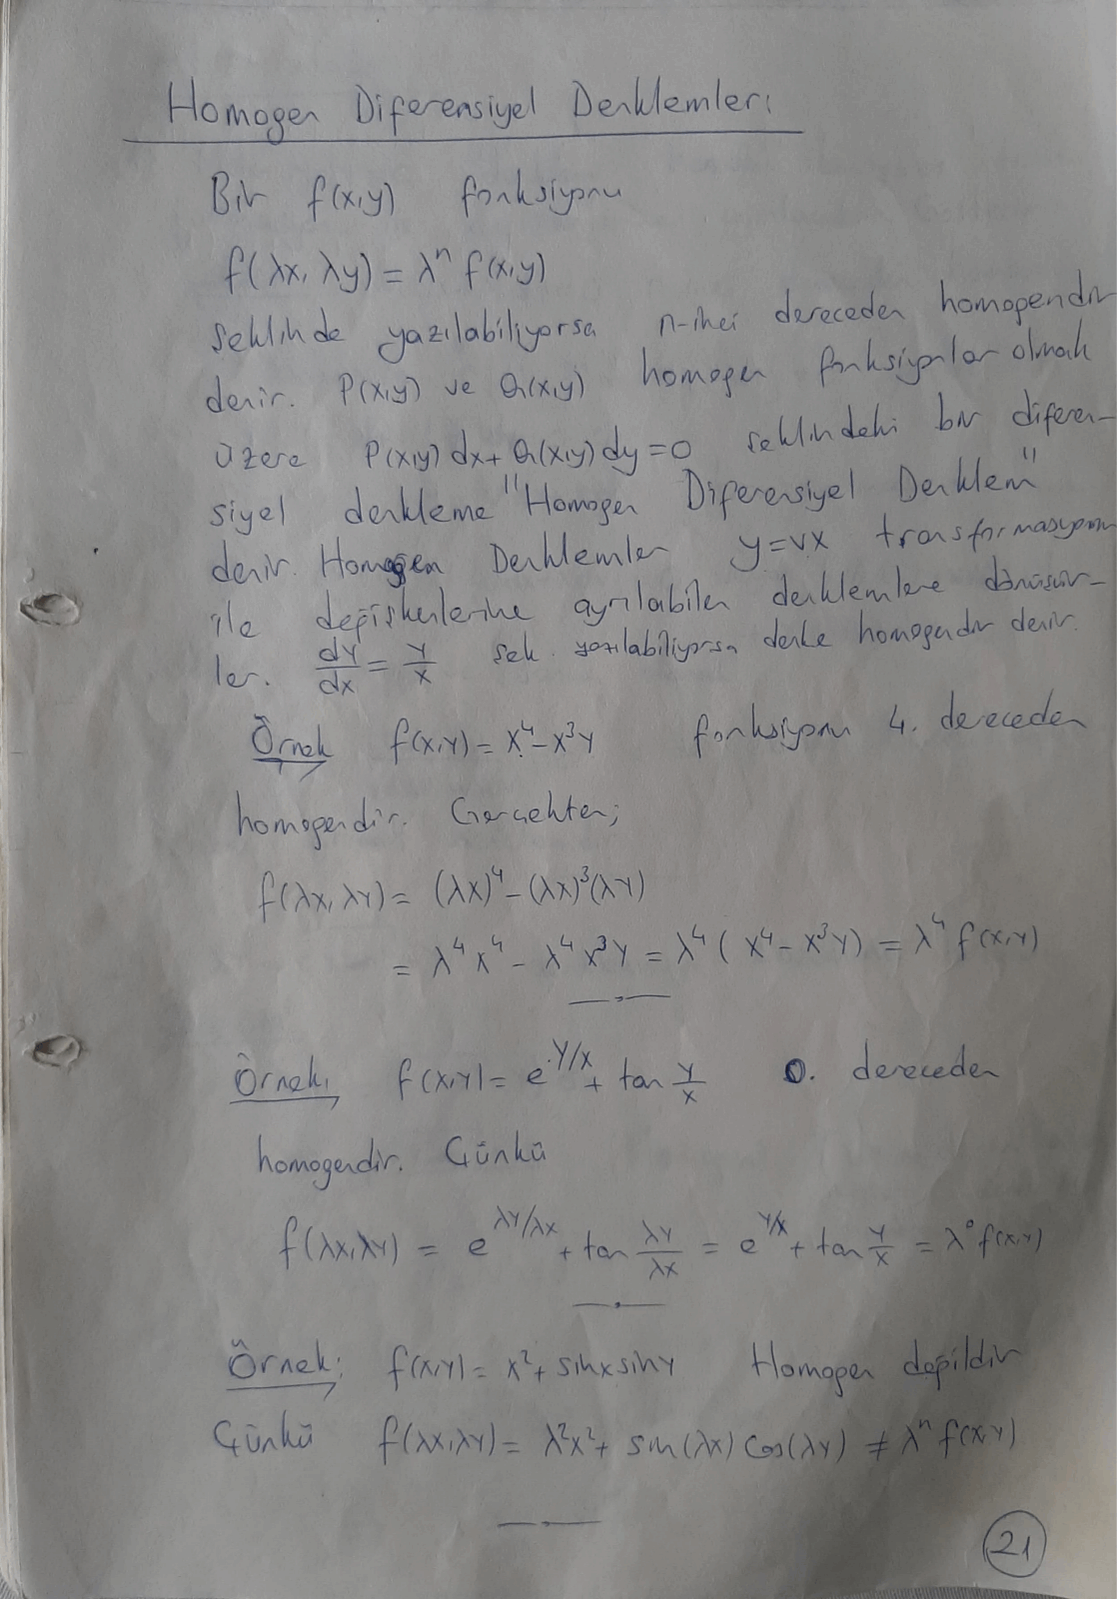 Homogen Diferensiyel Denklemler:
Bir f(x,y) fonksiyonu
f(λx, λy) = λⁿ f(x,y)
şeklinde yazılabiliyorsa n-inci dereceden homogendir
denir. P(x,y) ve Q(x,y) homogen fonksiyonlar olmak
üzere P(x,y) dx + Q(x,y) dy = 0 şeklindeki bir diferen-
siyel denkleme "Homogen Diferensiyel Denklem"
denir. Homogen Denklemler y=vx transformasyonu
ile değişkenlerine ayrılabilen denklemlere dönüşür-
ler. dy/dx = y/x şek. yazılabiliyorsa denke homogendir denir.
Örnek f(x,y) = x⁴ - x³y fonksiyonu 4. dereceden
homogendir. Gerçekten;
f(λx, λy) = (λx)⁴ - (λx)³(λy)
= λ⁴x⁴ - λ⁴x³y = λ⁴ (x⁴ - x³y) = λ⁴ f(x,y)
Örnek: f(x,y) = e^(y/x) + tan y/x 0. dereceden
homogendir. Çünkü
f(λx,λy) = e^(λy/λx) + tan λy/λx = e^(y/x) + tan y/x = λ⁰ f(x,y)
Örnek: f(x,y) = x² + sinx siny Homogen değildir
Çünkü f(λx,λy) = λ²x² + sin(λx) Cos(λy) ≠ λⁿ f(x,y)
21